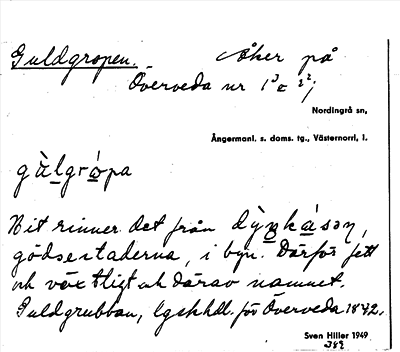 Guldgropen. Åker på
Överveda nr 1³ c 2²;
Nordingrå sn,
Ångermanl. s. doms. tg., Västernorrl. l.
gùlgrópa
Hit rinner det från dỳnkásən,
gödselstaderna, i byn. Därför fett
och växtligt och därav namnet.
Guldgrubban, lgskhdl. för Överveda 1872.
Sven Hiller 1949